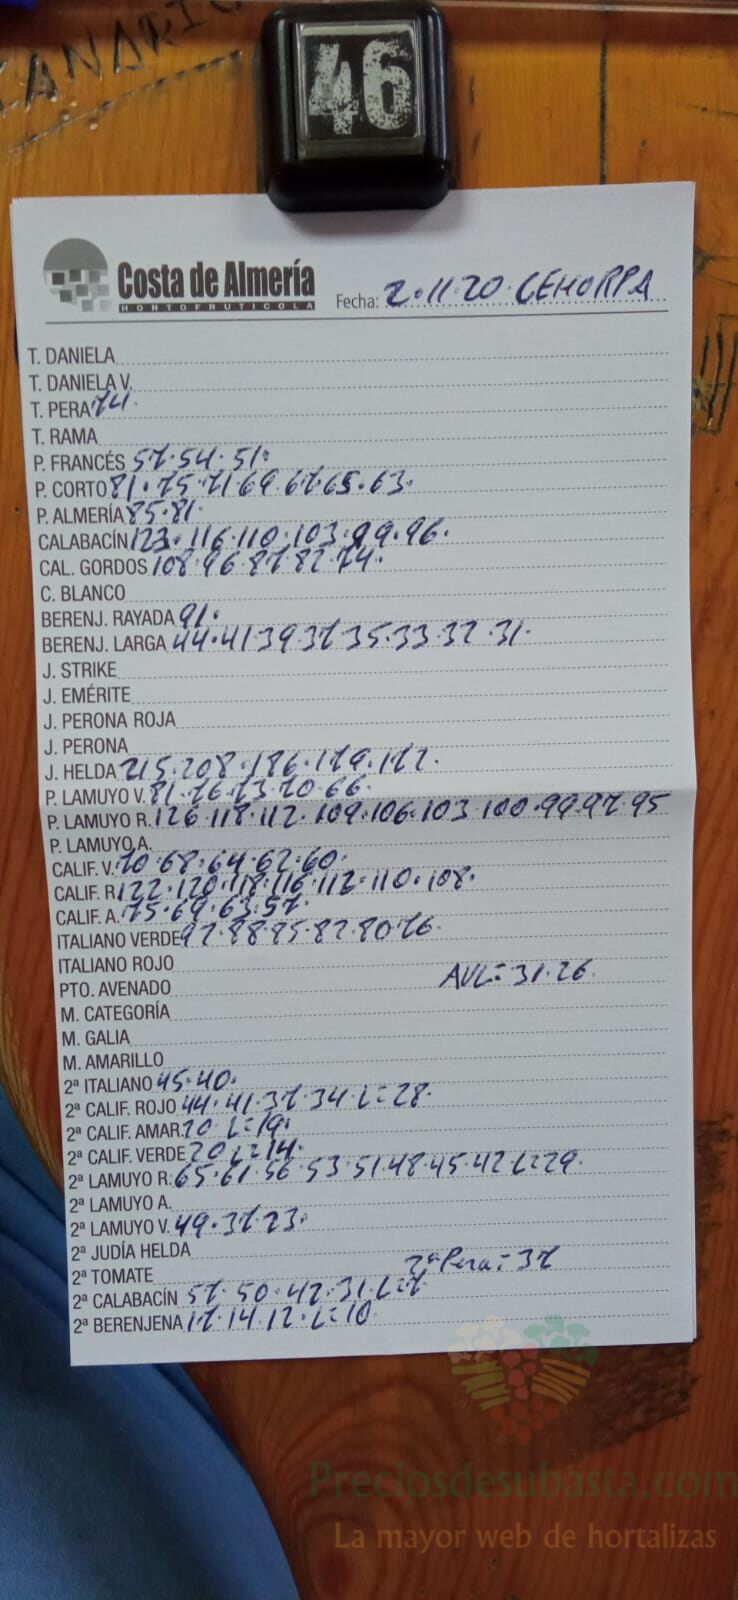 CANARIO
46
Costa de Almería
HORTOFRUTICOLA
Fecha: 2·11·20 CEHORPA
T. DANIELA
T. DANIELA V.
T. PERA 74·
T. RAMA
P. FRANCÉS 57·54·51·
P. CORTO 81·75·71·69·67·65·63·
P. ALMERÍA 85·81·
CALABACÍN 123·116·110·103·99·96·
CAL. GORDOS 108·96·87·82·74·
C. BLANCO
BERENJ. RAYADA 91·
BERENJ. LARGA 44·41·39·37·35·33·32·31·
J. STRIKE
J. EMÉRITE
J. PERONA ROJA
J. PERONA
J. HELDA 215·208·186·179·172·
P. LAMUYO V. 81·76·73·70·66·
P. LAMUYO R. 126·118·112·109·106·103·100·99·97·95
P. LAMUYO A.
CALIF. V. 70·68·64·62·60·
CALIF. R 122·120·118·116·112·110·108·
CALIF. A. 75·69·63·57·
ITALIANO VERDE 92·88·85·82·80·76·
ITALIANO ROJO
PTO. AVENADO AVL=31·26·
M. CATEGORÍA
M. GALIA
M. AMARILLO
2ª ITALIANO 45·40·
2ª CALIF. ROJO 44·41·37·34 L=28·
2ª CALIF. AMAR. 20 L=19·
2ª CALIF. VERDE 20 L=14·
2ª LAMUYO R. 65·61·56·53·51·48·45·42 L=29·
2ª LAMUYO A.
2ª LAMUYO V. 49·37·23·
2ª JUDÍA HELDA
2ª TOMATE 2ª Pera=37
2ª CALABACÍN 57·50·42·31·L=7
2ª BERENJENA 17·14·12·L=10
Preciosdesubasta.com
La mayor web de hortalizas